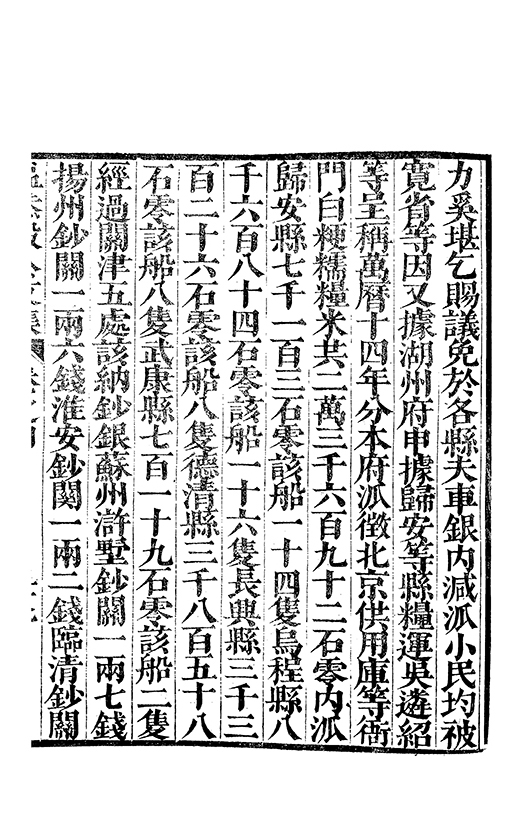 力奚堪乞賜議免於各縣夫車銀內減派小民均被
寬省等因又據湖州府申據歸安等縣糧運吳遴紹
等呈稱萬曆十四年分本府派徵北京供用庫等衙
門白粳糯糧米共二萬三千六百九十二石零內派
歸安縣七千一百三石零該船一十四隻烏程縣八
千六百八十四石零該船一十六隻長興縣三千三
百二十六石零該船八隻德清縣三千八百五十八
石零該船八隻武康縣七百一十九石零該船二隻
經過關津五處該納鈔銀蘇州滸墅鈔關一兩七錢
揚州鈔關一兩六錢淮安鈔関一兩二錢臨清鈔關